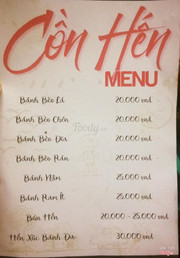 Cồn Hến
MENU
Bánh Bèo Lá 20.000 vnđ
Bánh Bèo Chén 20.000 vnđ
Bánh Bèo Đĩa 20.000 vnđ
Bánh Bèo Rán 20.000 vnđ
Bánh Nậm 25.000 vnđ
Bánh Ram Ít 25.000 vnđ
Bún Hến 20.000 - 25.000 vnđ
Hến Xúc Bánh Đa 30.000 vnđ
Foody